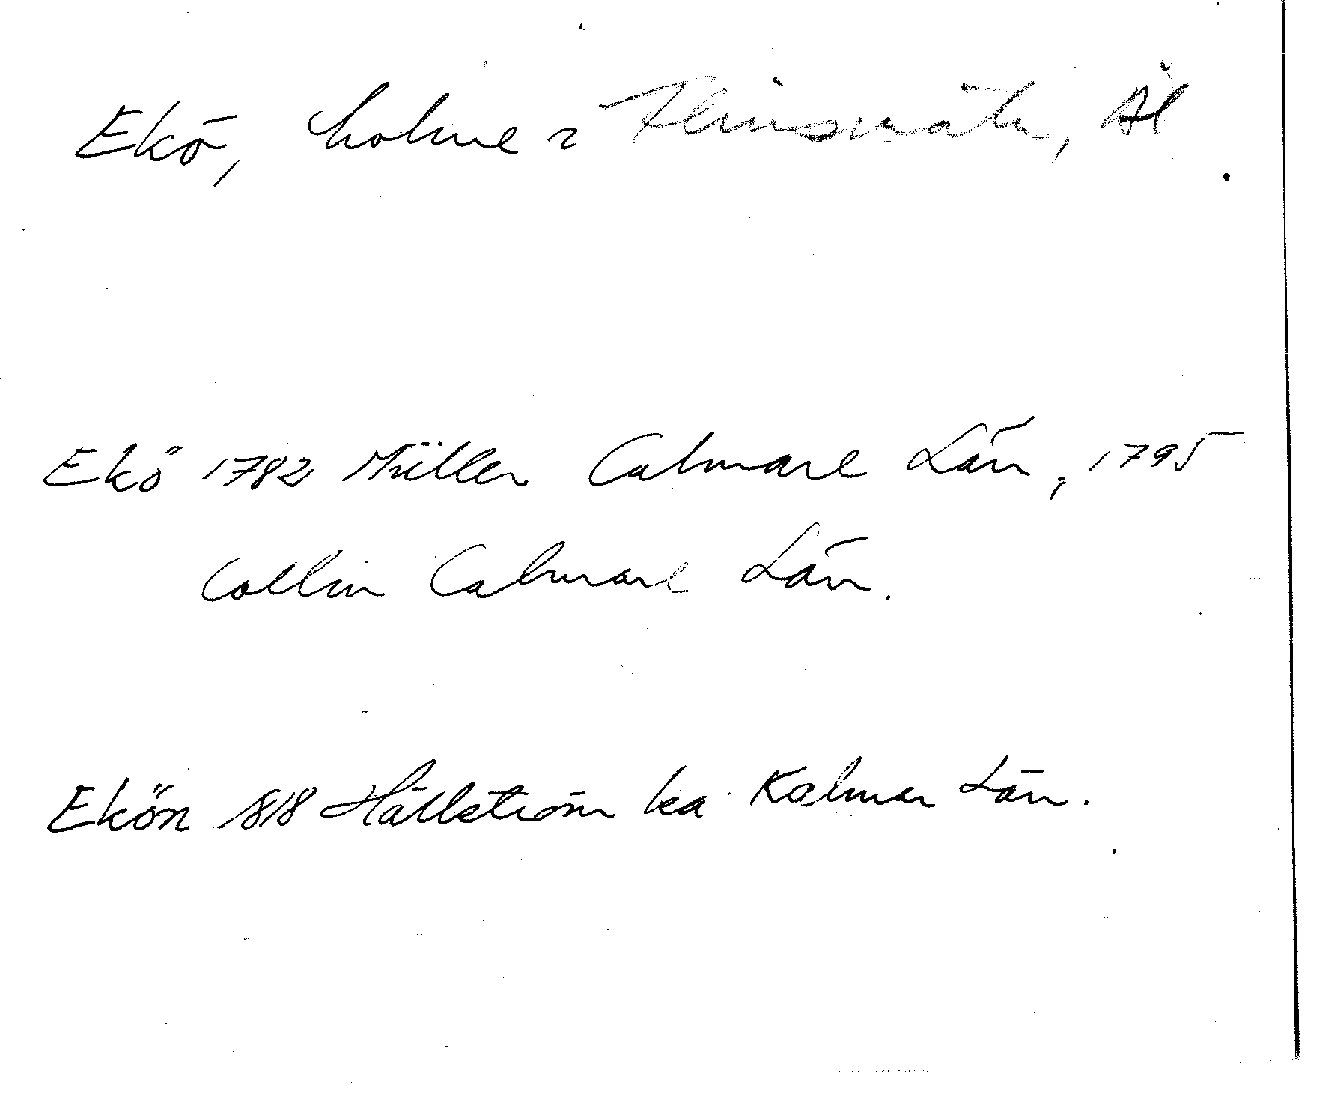 Ekö, holme i Hinsmåla, Äl
Ekö 1782 Müller Calmare Län, 1795
Collin Calmare Län.
Ekön 1818 Hällström ka Kalmar Län.